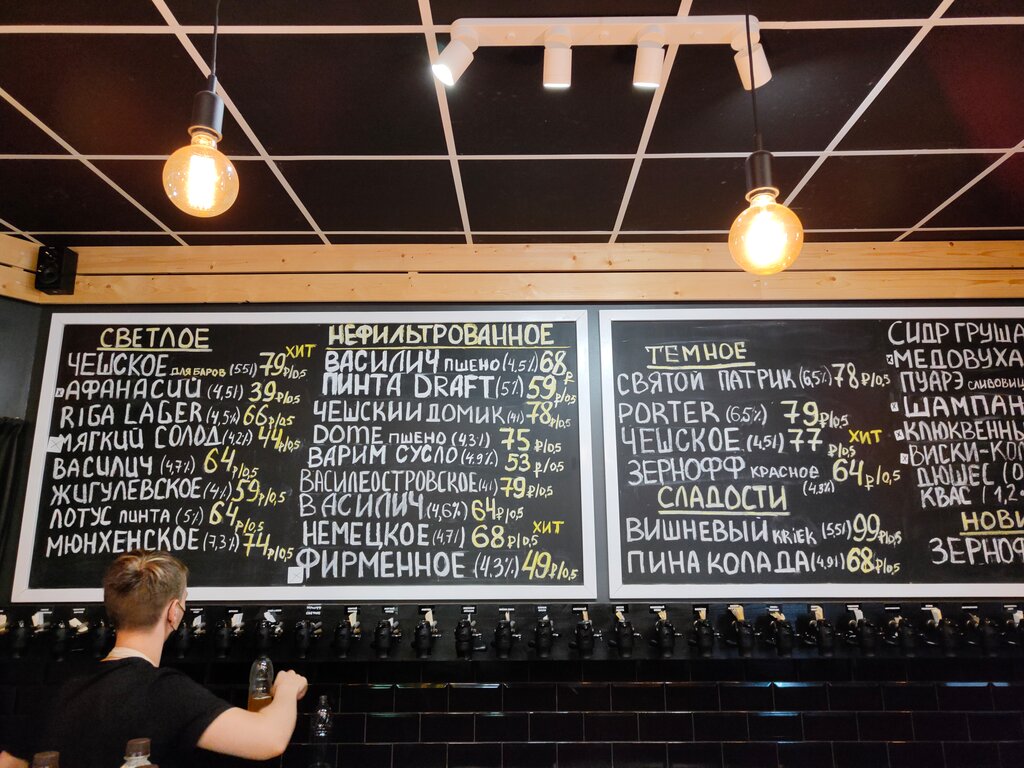 СВЕТЛОЕ
ЧЕШСКОЕ ДЛЯ БАРОВ (5,5%) 79₽/0,5 ХИТ
АФАНАСИЙ (4,5%) 39₽/0,5
RIGA LAGER (4,5%) 66₽/0,5
МЯГКИЙ СОЛОД (4,2%) 44₽/0,5
ВАСИЛИЧ (4,7%) 64₽/0,5
ЖИГУЛЕВСКОЕ (4%) 59₽/0,5
ЛОТУС ПИНТА (5%) 64₽/0,5
МЮНХЕНСКОЕ (7,3%) 74₽/0,5
НЕФИЛЬТРОВАННОЕ
ВАСИЛИЧ ПШЕНО (4,5%) 68₽
ПИНТА DRAFT (5%) 59₽/0,5
ЧЕШСКИЙ ДОМИК (4%) 78₽/0,5
DOME ПШЕНО (4,3%) 75₽/0,5
ВАРИМ СУСЛО (4.9%) 53₽/0,5
ВАСИЛЕОСТРОВСКОЕ (4%) 79₽/0,5
ВАСИЛИЧ (4,6%) 64₽/0,5
НЕМЕЦКОЕ (4,7%) 68₽/0,5 ХИТ
ФИРМЕННОЕ (4.3%) 49₽/0,5
ТЕМНОЕ
СВЯТОЙ ПАТРИК (6,5%) 78₽/0,5
PORTER (6.5%) 79₽/0,5
ЧЕШСКОЕ (4,5%) 77₽/0,5 ХИТ
ЗЕРНОФФ КРАСНОЕ (4,8%) 64₽/0,5
СЛАДОСТИ
ВИШНЕВЫЙ KRIEK (5,5%) 99₽/0,5
ПИНА КОЛАДА (4,9%) 68₽/0,5
СИДР ГРУША
МЕДОВУХА
ПУАРЭ СЛИВОВИЦ
ШАМПАН
КЛЮКВЕННЫ
ВИСКИ-КОЛ
ДЮШЕС (0
КВАС (1,2
НОВИ
ЗЕРНОФ